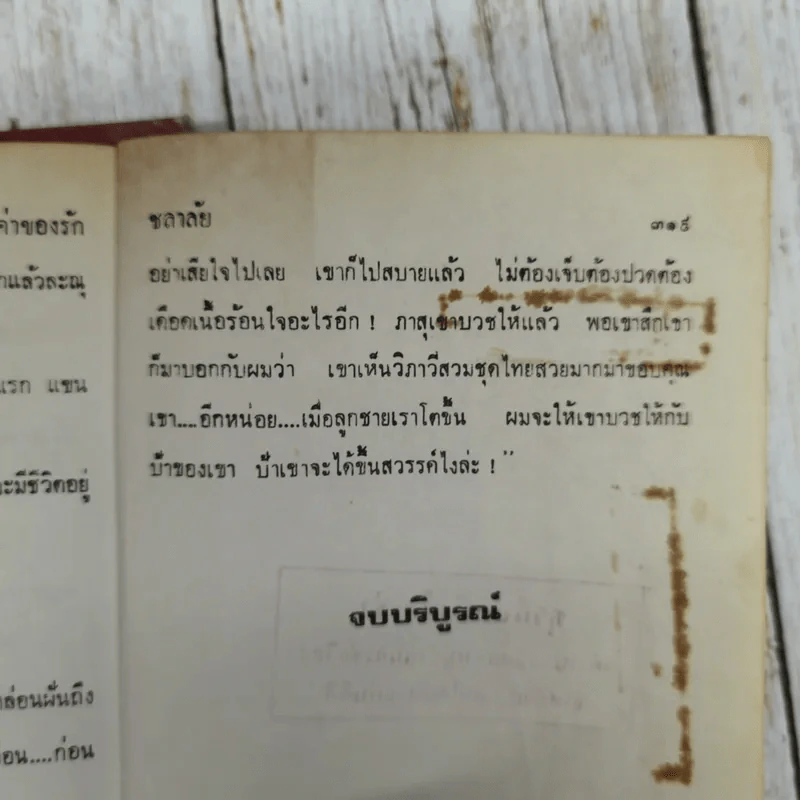 ค่าของรัก
าแล้วละณุ
แรก แขน
ะมีชีวิตอยู่
ล่อนผั่นถึง
อน....ก่อน
ชลาลัย ๓๑๙
อย่าเสียใจไปเลย เขาก็ไปสบายแล้ว ไม่ต้องเจ็บต้องปวดต้อง
เดือดเนื้อร้อนใจอะไรอีก ! ภาสุเขาบวชให้แล้ว พอเขาสึกเขา
ก็มาบอกกับผมว่า เขาเห็นวิภาวีสวมชุดไทยสวยมากมาขอบคุณ
เขา....อีกหน่อย....เมื่อลูกชายเราโตขึ้น ผมจะให้เขาบวชให้กับ
ป้าของเขา ป้าเขาจะได้ขึ้นสวรรค์ไงล่ะ !”
จบบริบูรณ์